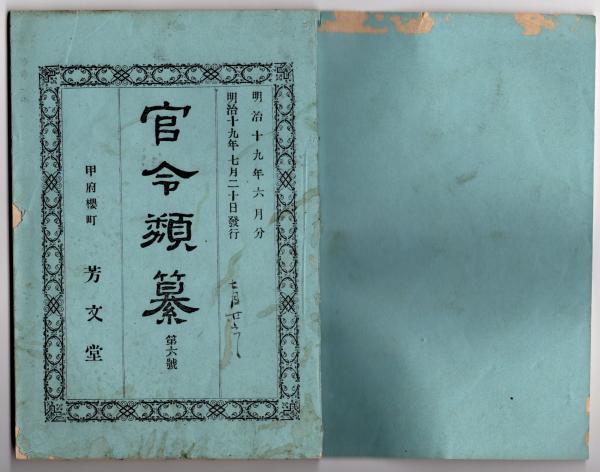 明治十九年六月分
明治十九年七月二十日發行
官令類纂
第六號
甲府櫻町
芳文堂